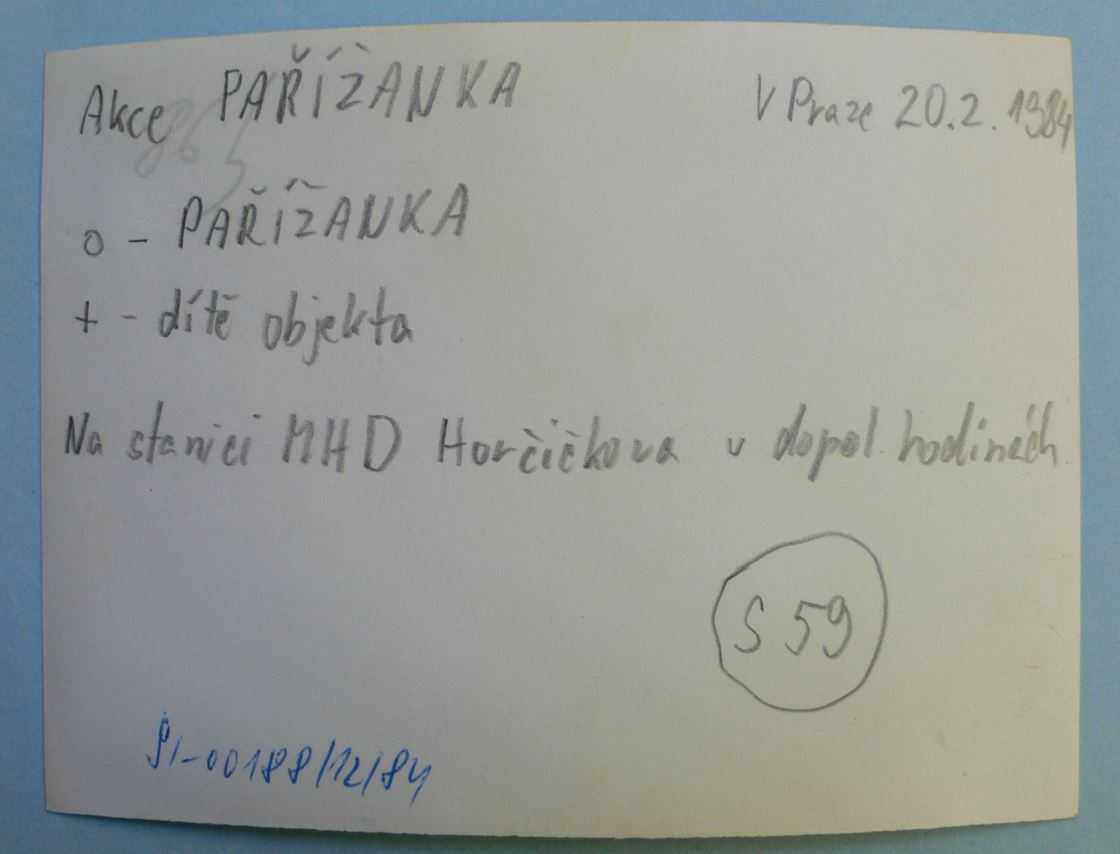 Akce PAŘÍŽANKA V Praze 20.2.1984
o - PAŘÍŽANKA
+ - dítě objekta
Na stanici MHD Horčičkova v dopol. hodinách.
S 59
-00188/12/84